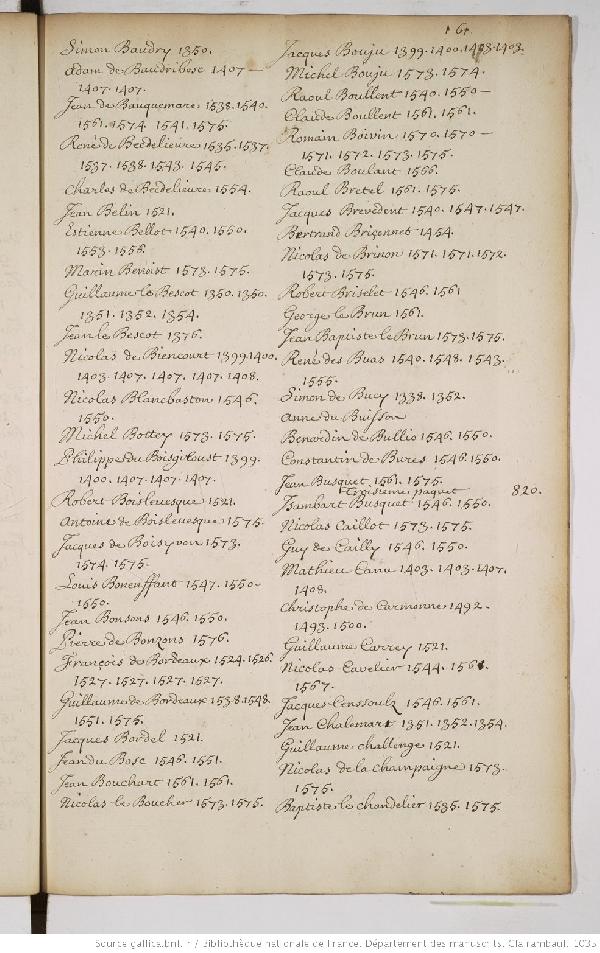 161.
Simon Baudry 1350.
Adam de Baudribosc 1407 —
1407. 1407.
Jean de Bauquemare 1538. 1540.
1561. 1574. 1541. 1575.
René de Becdelievre 1535. 1537.
1537. 1538. 1543. 1545.
Charles de Becdelievre 1554.
Jean Belin 1521.
Estienne Bellot 1540. 1550.
1553. 1556.
Marin Benoist 1573. 1575.
Guillaume le Bescot 1350. 1350.
1351. 1352. 1354.
Jean le Bescot 1376.
Nicolas de Biencourt 1399. 1400.
1403. 1407. 1407. 1407. 1408.
Nicolas Blancbaston 1546.
1550.
Michel Bottey 1573. 1575.
Philippes du Boisgiloust 1399.
1400. 1407. 1407. 1407.
Robert Boislevesque 1521.
Antoine de Boislevesque 1575.
Jacques de Boisyvon 1573.
1574. 1575.
Louis Boneuffant 1547. 1550 —
1550.
Jean Bonsons 1546. 1550.
Pierre de Bonzons 1576.
François de Bordeaux 1524. 1526.
1527. 1527. 1527. 1527.
Guillaume de Bordeaux 1538. 1548.
1551. 1575.
Jacques Bordel 1521.
Jean du Bosc 1546. 1551.
Jean Bouchart 1561. 1561.
Nicolas le Boucher 1573. 1575.
Jacques Bouju 1399. 1400. 1403. 1403.
Michel Bouju 1573. 1574.
Raoul Boullent 1540. 1550 —
Claude Boullent 1561. 1561.
Romain Boivin 1570. 1570 —
1571. 1572. 1573. 1575.
Claude Boulant 1566.
Raoul Bretel 1561. 1575.
Jacques Brevedent 1540. 1547. 1547.
Bertrand Briçonnet 1454.
Nicolas de Brinon 1571. 1571. 1572.
1573. 1575.
Robert Briselet 1546. 1561
George le Brun 1561.
Jean Baptiste le Brun 1573. 1575.
René des Buas 1540. 1548. 1543.
1555.
Simon de Bucy 1338. 1352.
Anne du Buisson
Benardin de Bullio 1546. 1550.
Constantin de Bures 1546. 1550.
Jean Busquet 1561. 1575.
troisieme paquet 820.
Isambart Busquet 1546. 1550.
Nicolas Caillot 1573. 1575.
Guy de Cailly 1546. 1550.
Mathieu Canu 1403. 1403. 1407.
1408.
Christophe de Carmonne 1492.
1493. 1500.
Guillaume Carrey 1521.
Nicolas Cavelier 1544. 1561.
1567.
Jacques Censsoulz 1546. 1561.
Jean Chalemart 1351. 1352. 1354.
Guillaume challenge 1521.
Nicolas de la champaigne 1573.
1575.
Baptiste le chandelier 1535. 1575.
Source gallica.bnf.fr / Bibliothèque nationale de France. Département des manuscrits. Clairambault 1035